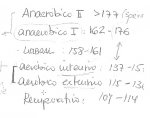 Anaerobico II >177 (Spen
anaerobico I: 162-176
Umbral: 158-161
aerobico intensivo: 137-157
Aerobico extensivo 115-136
Recuperativo: 107-114